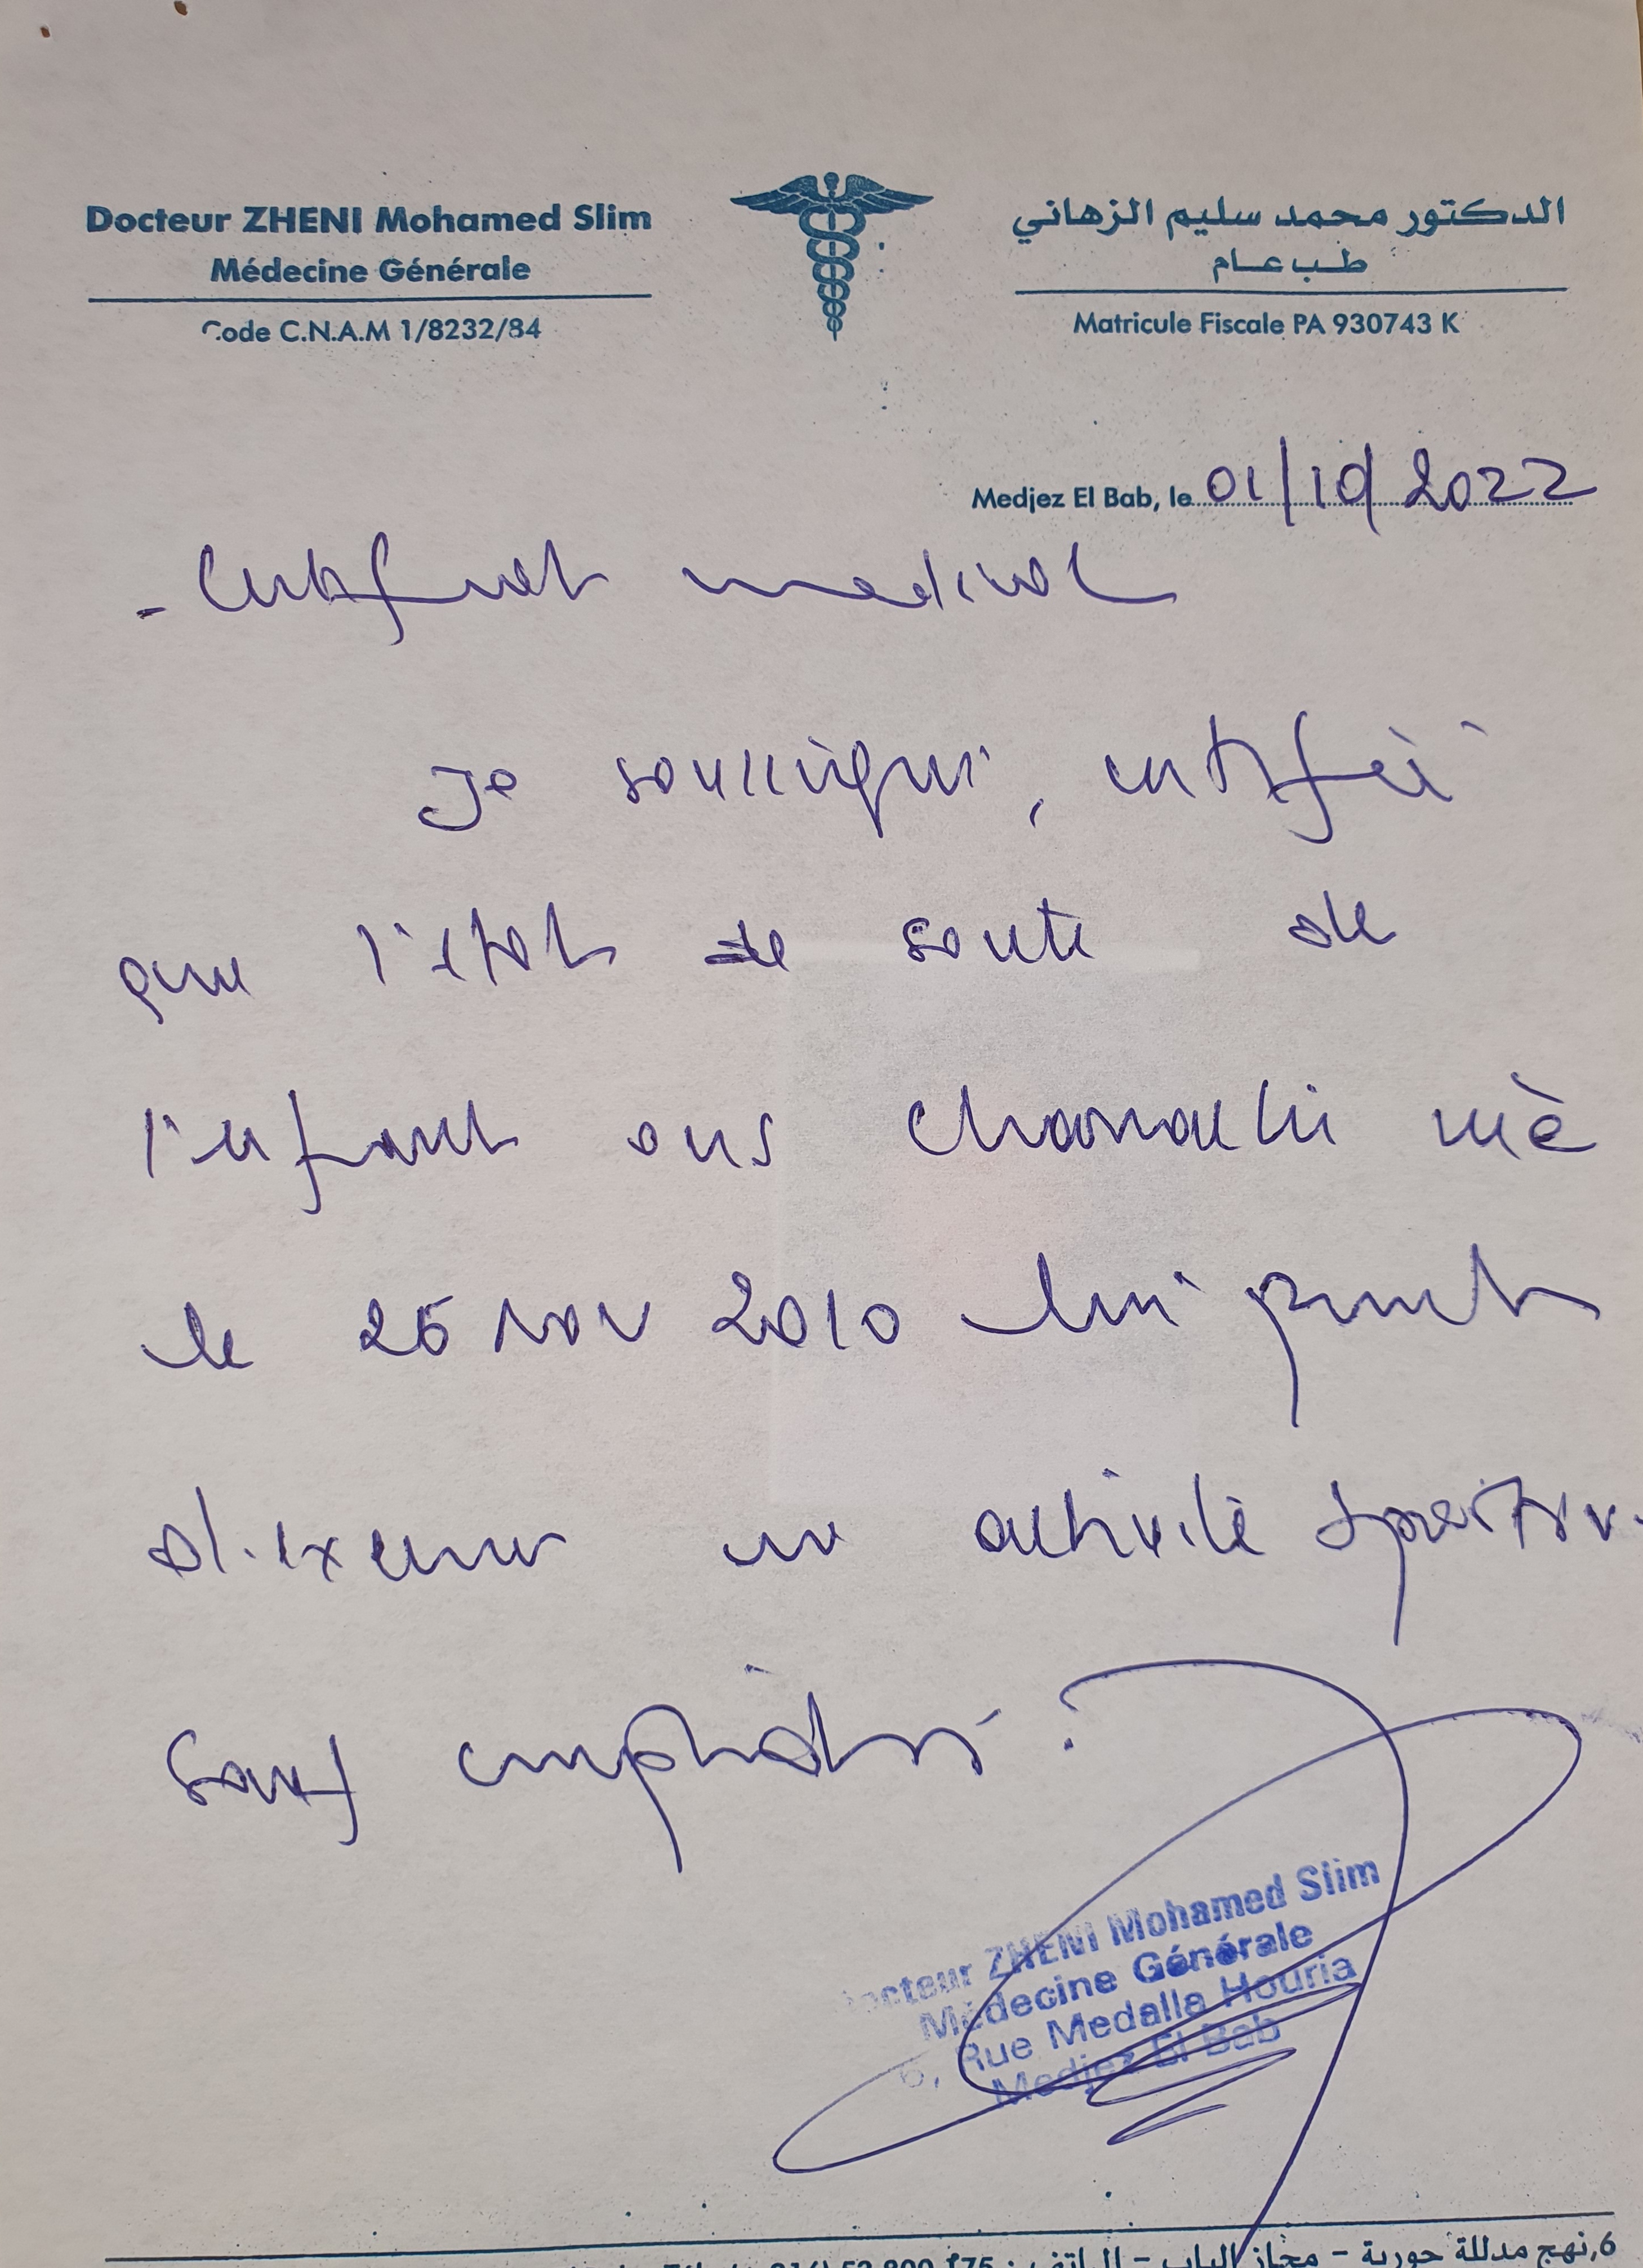 Docteur ZHENI Mohamed Slim
Médecine Générale
Code C.N.A.M 1/8232/84
الدكتور محمد سليم الزهاني
طب عام
Matricule Fiscale PA 930743 K
Medjez El Bab, le 01/10/2022
- Certificat medical
Je soussigné, certifié
que l'état de santé de
l'enfant ons né
le 26 Nov 2010 lui permet
d'exercer une activité sportive
sauf
Docteur ZHENI Mohamed Slim
Médecine Générale
6, Rue Medalla Houria
Medjez El Bab
6, نهج مدللة حورية - مجاز الباب - الهاتف :